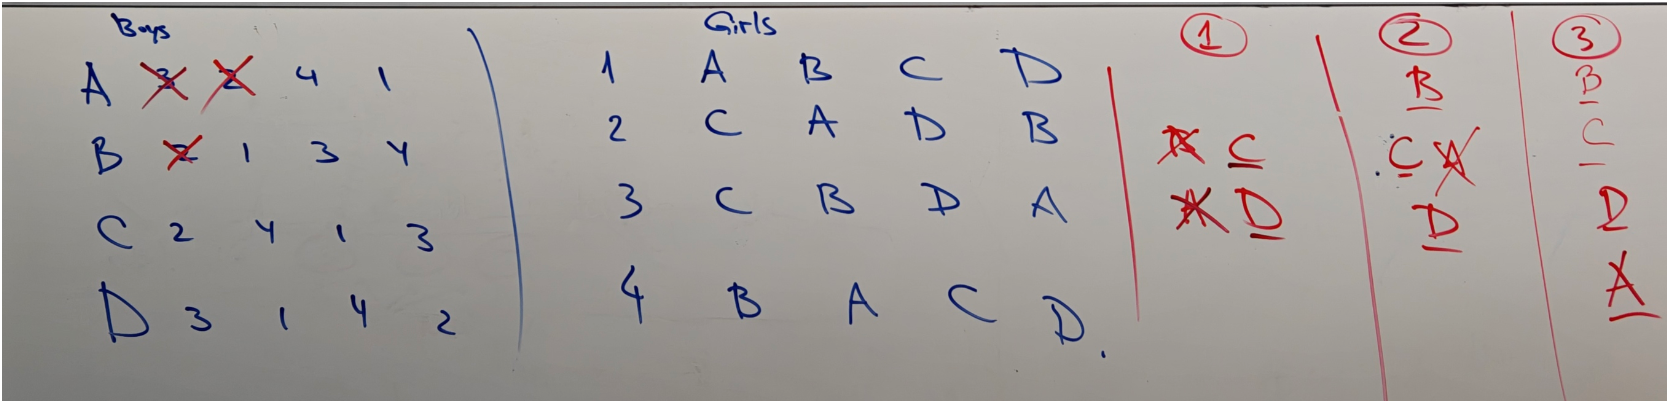 Boys Girls 1 2 3
A 3 2 4 1 1 A B C D B B
B 2 1 3 4 2 C A D B B C C A C
C 2 4 1 3 3 C B D A A D D D
D 3 1 4 2 4 B A C D. A